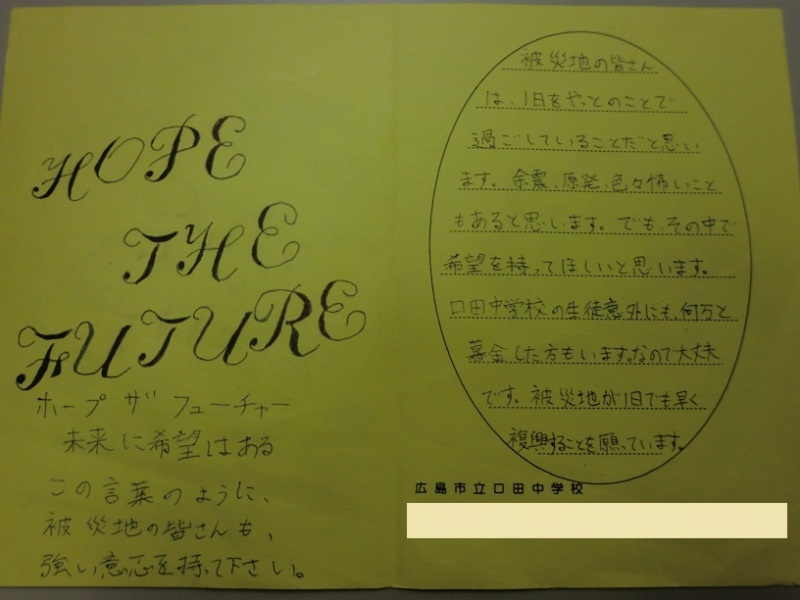 HOPE
THE
FUTURE
ホープ ザ フューチャー
未来に希望はある
この言葉のように、
被災地の皆さんも、
強い意志を持って下さい。
被災地の皆さん
は、1日をやっとのことで
過ごしていることだと思い
ます。余震、原発、色々怖いこと
もあると思います。でも、その中で
希望を持ってほしいと思います。
口田中学校の生徒意外にも、何万と
募金した方もいます。なので大丈夫
です。被災地が1日でも早く
複興することを願っています。
広島市立口田中学校